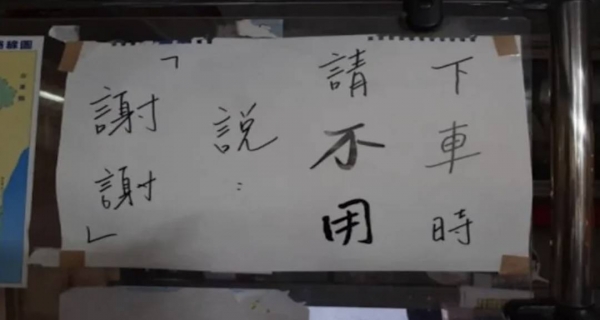 下車時
請不用
說：
「謝謝」
線圖